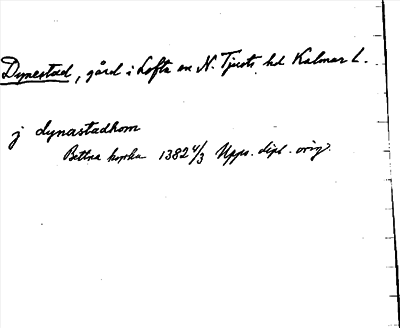 Dynestad, gård i Lofta sn N. Tjusts hd Kalmar L.
j dynastadhom
Bettna kyrka 1382 4/3 Upps. dipl. orig.